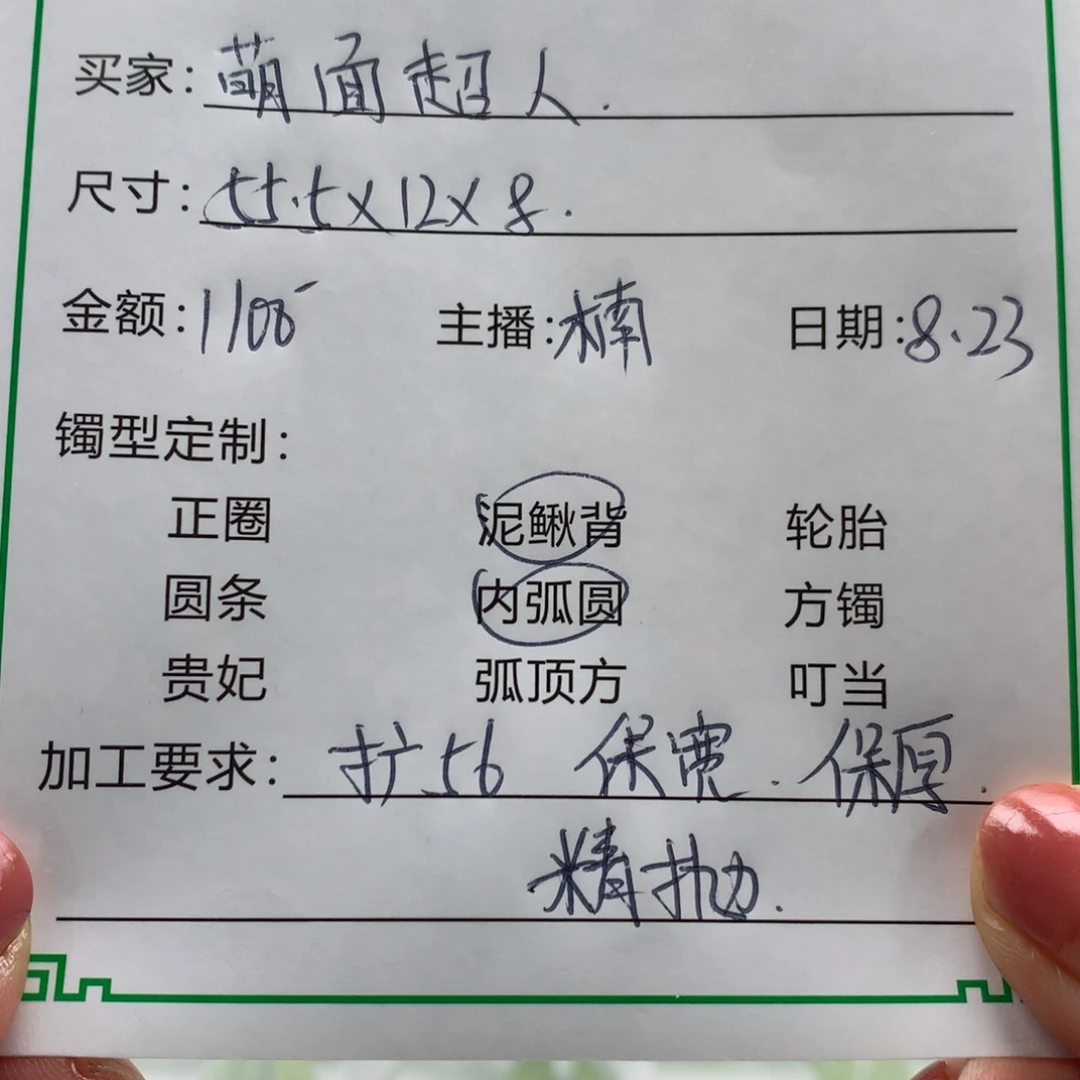 买家：萌面超人.
尺寸：55.5×12×8.
金额：1100 主播：楠 日期：8.23
镯型定制：
正圈 泥鳅背 轮胎
圆条 内弧圆 方镯
贵妃 弧顶方 叮当
加工要求：扩56 保宽.保厚.
精抛.